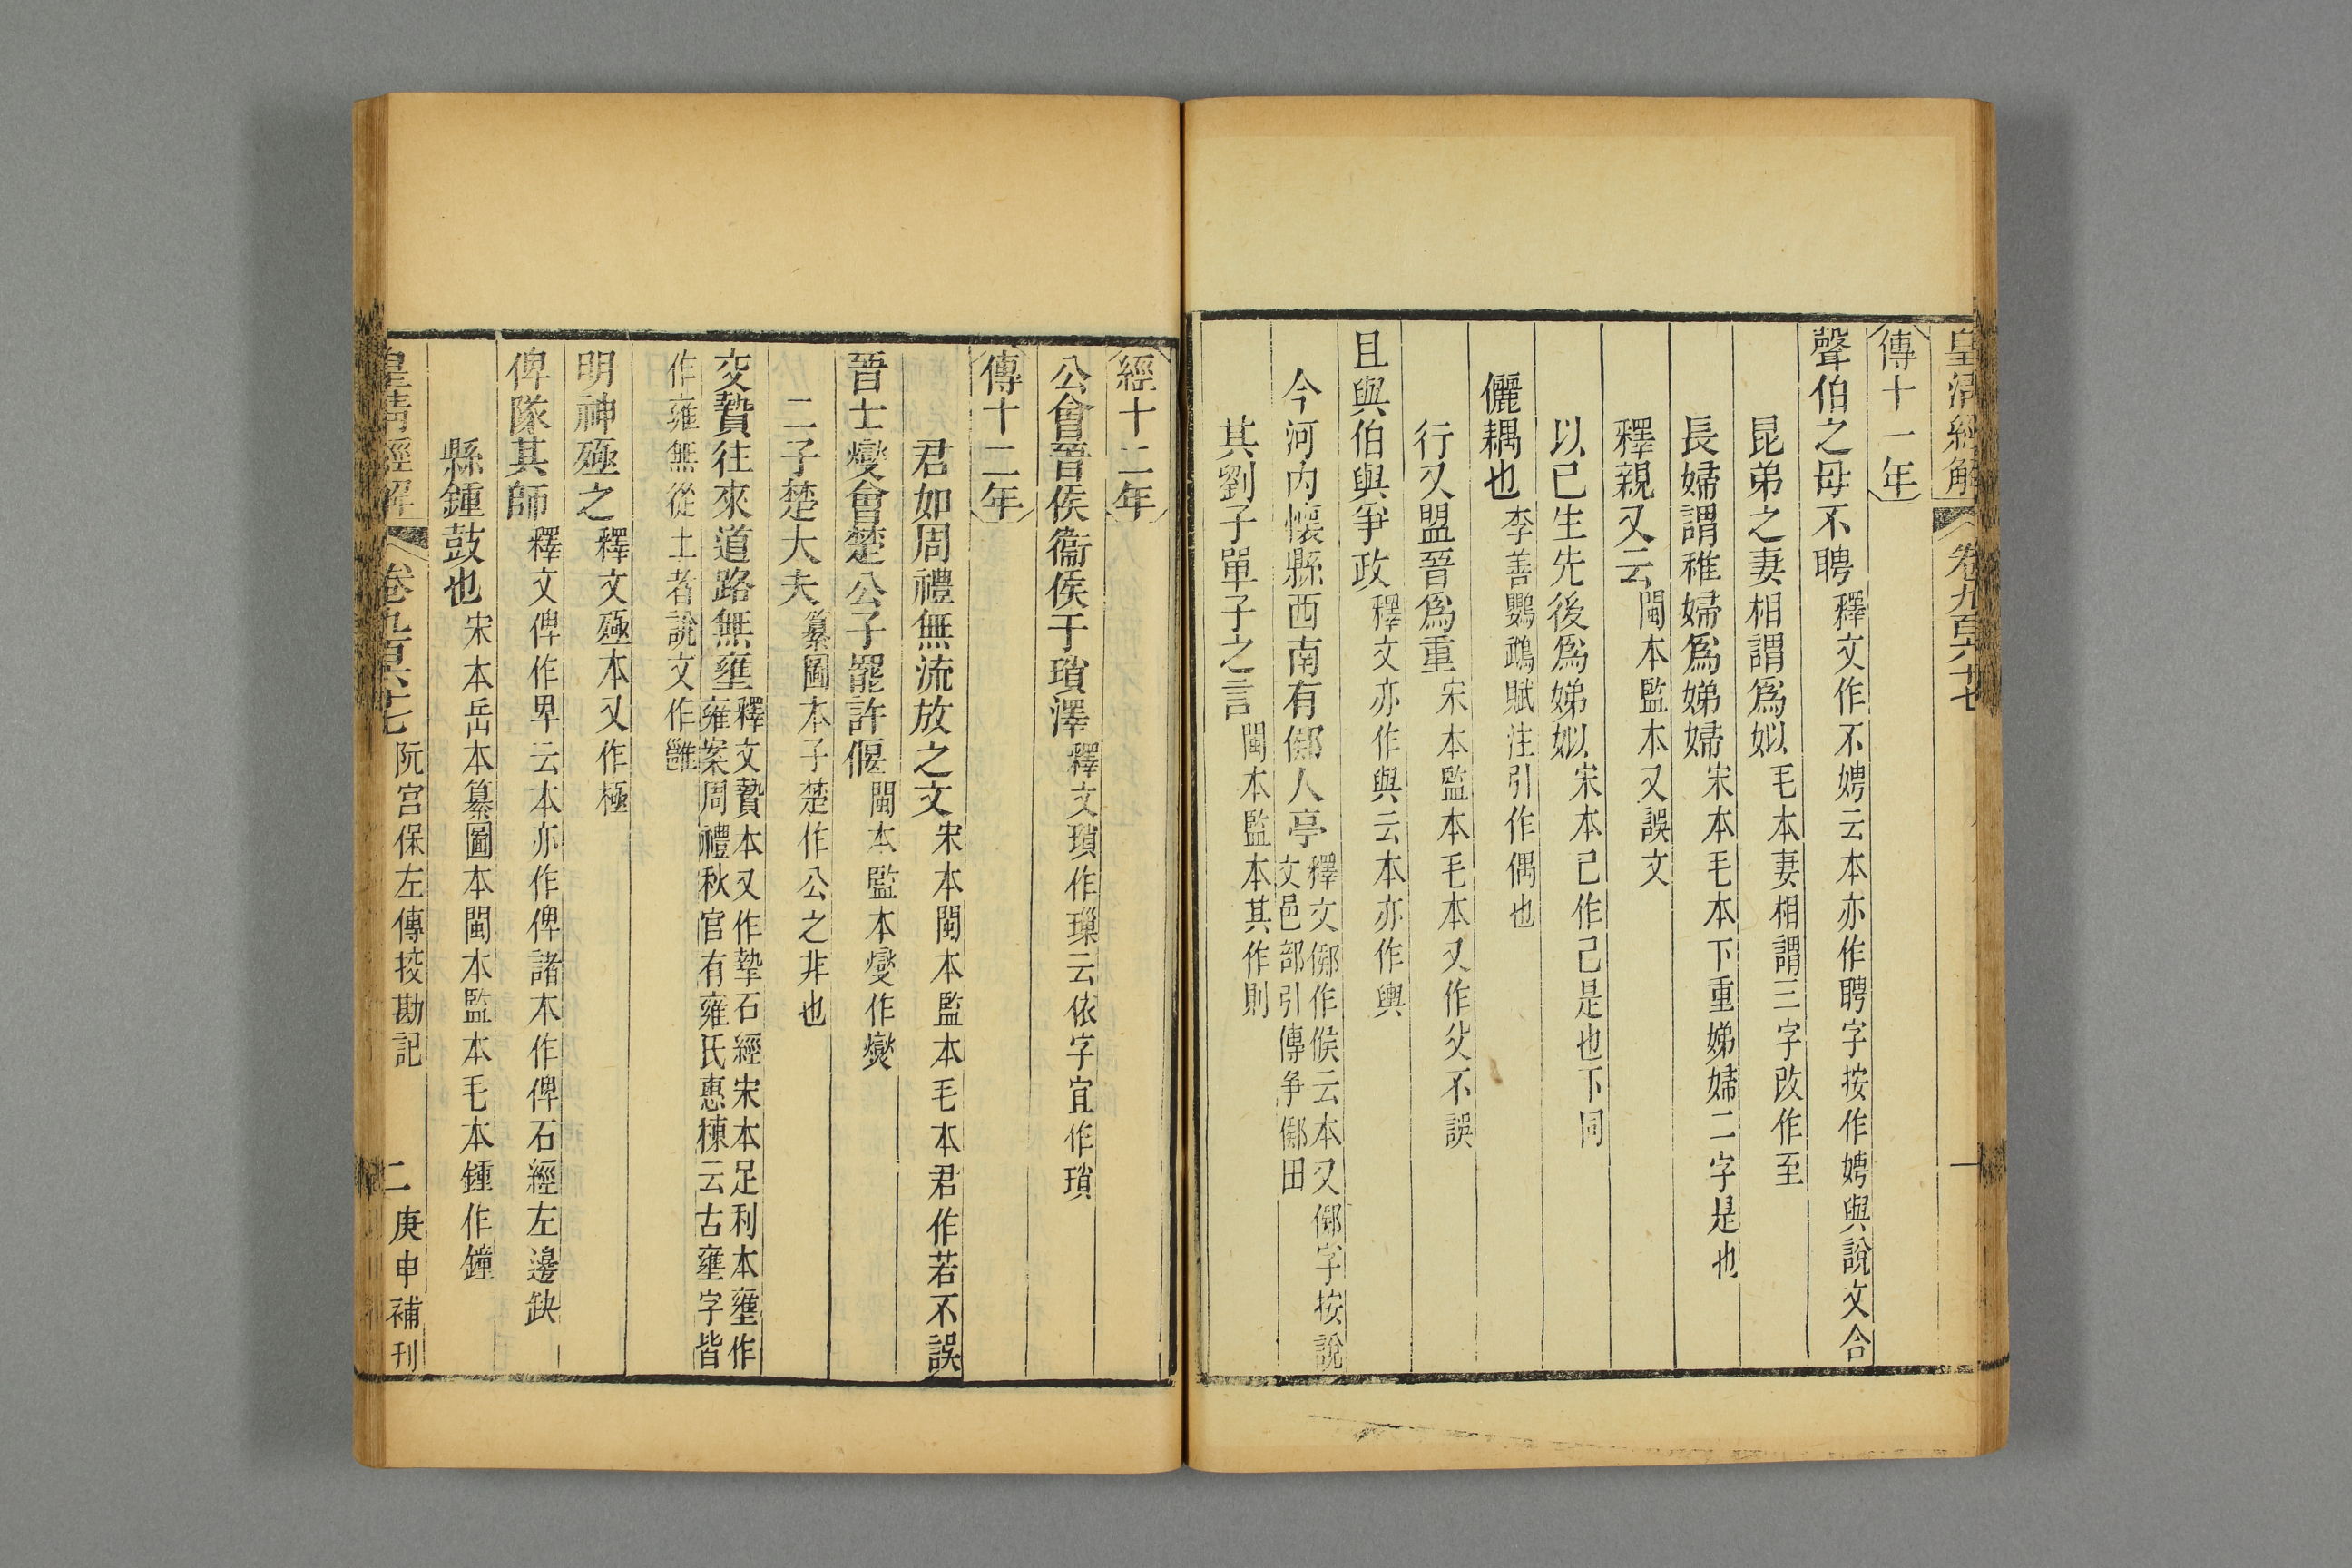 皇清經解 卷九百六十七 一
傳十一年
聲伯之母不聘 釋文作不娉云本亦作聘字按作娉與說文合
昆弟之妻相謂爲姒 毛本妻相謂三字改作至
長婦謂稚婦爲娣婦 宋本毛本下重娣婦二字是也
釋親又云 閩本監本又誤文
以已生先後爲娣姒 宋本已作己是也下同
儷耦也 李善鸚鵡賦注引作偶也
行又盟晉爲重 宋本監本毛本又作父不誤
且與伯與爭政 釋文亦作與云本亦作輿
今河內懷縣西南有鄇人亭 釋文鄇作候云本又鄇字按說
文邑部引傳爭鄇田
其劉子單子之言 閩本監本其作則
經十二年
公會晉侯衞侯于瑣澤 釋文瑣作璅云依字宜作瑣
傳十二年
君如周禮無流放之文 宋本閩本監本毛本君作若不誤
晉士燮會楚公子罷許偃 閩本監本燮作爕
二子楚大夫 纂圖本子楚作公之非也
交贄往來道路無壅 釋文贄本又作摯石經宋本足利本壅作
雍案周禮秋官有雍氏惠棟云古壅字皆
作雍無從土者說文作雝
明神殛之 釋文殛本又作極
俾隊其師 釋文俾作卑云本亦作俾諸本作俾石經左邊缺
縣鍾鼓也 宋本岳本纂圖本閩本監本毛本鍾作鐘
皇清經解 卷九百六十七 阮宮保左傳挍勘記 二 庚申補刊